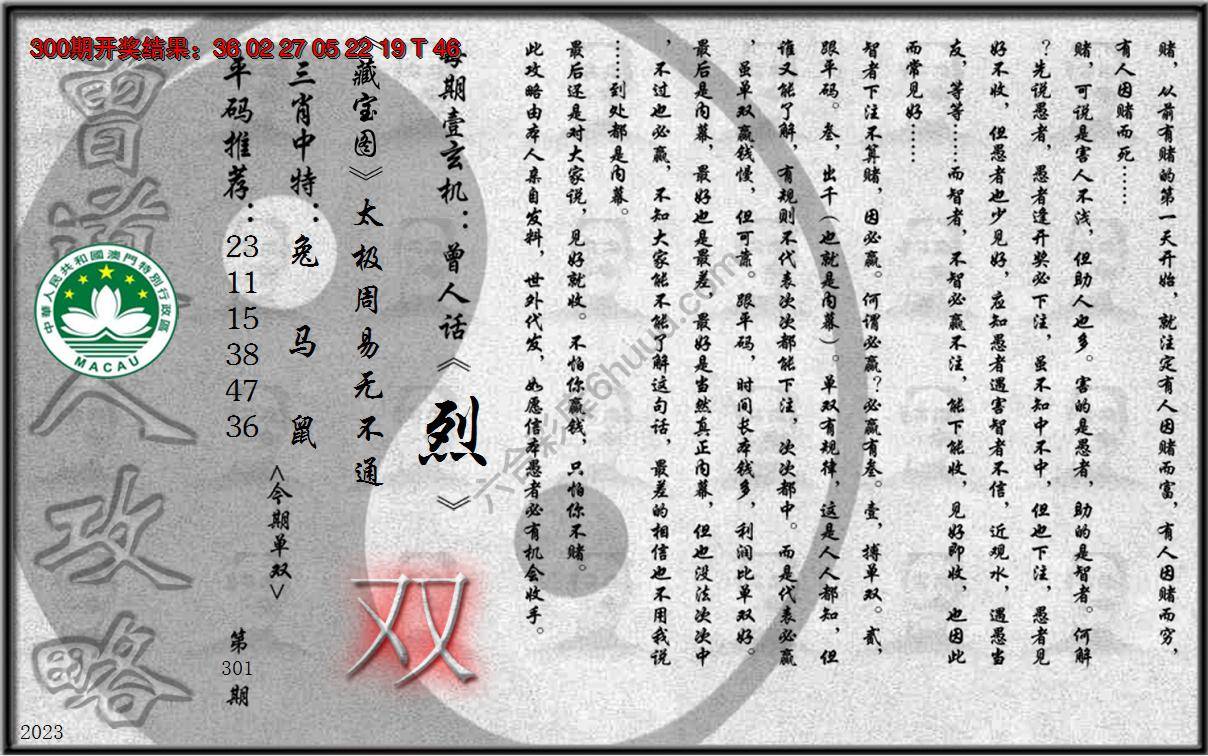 300期开奖结果：36 02 27 05 22 19 T 46
赌，从前有赌的第一天开始，就注定有人因赌而富，有人因赌而穷，
有人因赌而死……
赌，可说是害人不浅，但助人也多。害的是愚者，助的是智者。何解
？先说愚者，愚者逢开奖必下注，虽不知中不中，但也下注，愚者见
好不收，但愚者也少见好，应知愚者遇害智者不信，近观水，遇愚当
友，等等……而智者，不智必赢不注，能下能收，见好即收，也因此
而常见好……
智者下注不算赌，因必赢。何谓必赢？必赢有叁。壹，搏单双。贰，
跟平码。叁，出千（也就是内幕）。单双有规律，这是人人都知，但
谁又能了解，有规则不代表次次都能下注，次次都中。而是代表必赢
，虽单双赢钱慢，但可靠。跟平码，时间长本钱多，利润比单双好。
最后是内幕，最好也是最差，最好是当然真正内幕，但也没法次次中
，不过也必赢，不知大家能不能了解这句话，最差的相信也不用我说
……到处都是内幕。
最后还是对大家说，见好就收。不怕你赢钱，只怕你不赌。
此攻略由本人亲自发料，世外代发，如愿信本愚者必有机会收手。
每期壹玄机：曾人话《烈》
《藏宝图》太极周易无不通
双
三肖中特：兔 马 鼠
<今期单双>
平码推荐：
23
11
15
38
47
36
第
301
期
曾道人攻略
中華人民共和國澳門特別行政區
MACAU
2023